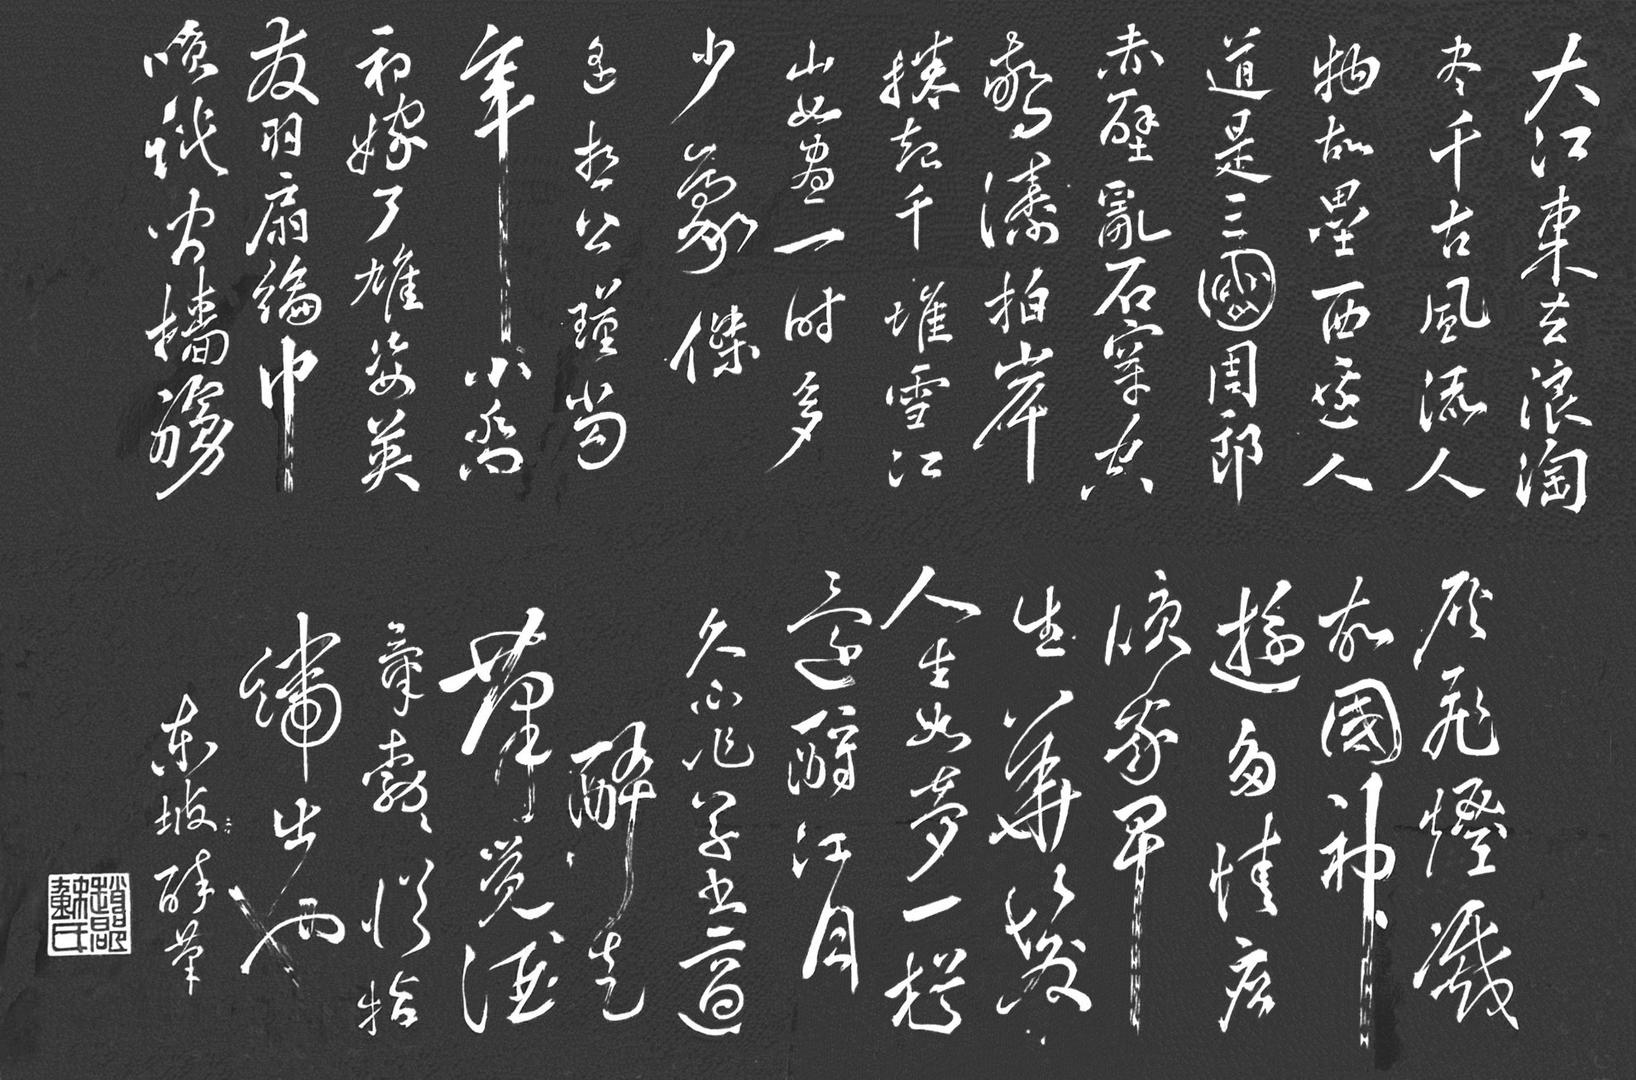 大江東去浪淘
尽千古風流人
物故壘西邊人
道是三國周郎
赤壁亂石穿空
驚濤拍岸
捲起千堆雪江
山如畫一時多
少豪傑
遙想公瑾當
年小喬
初嫁了雄姿英
友羽扇綸巾
笑談間檣艣
灰飛煙滅
故國神
遊多情应
笑我早
生華髮
人生如夢一樽
還酹江月
久不作草书適
醉走
筆觉酒
氣勃勃從指
端出也
東坡醉筆
趙郡蘇氏